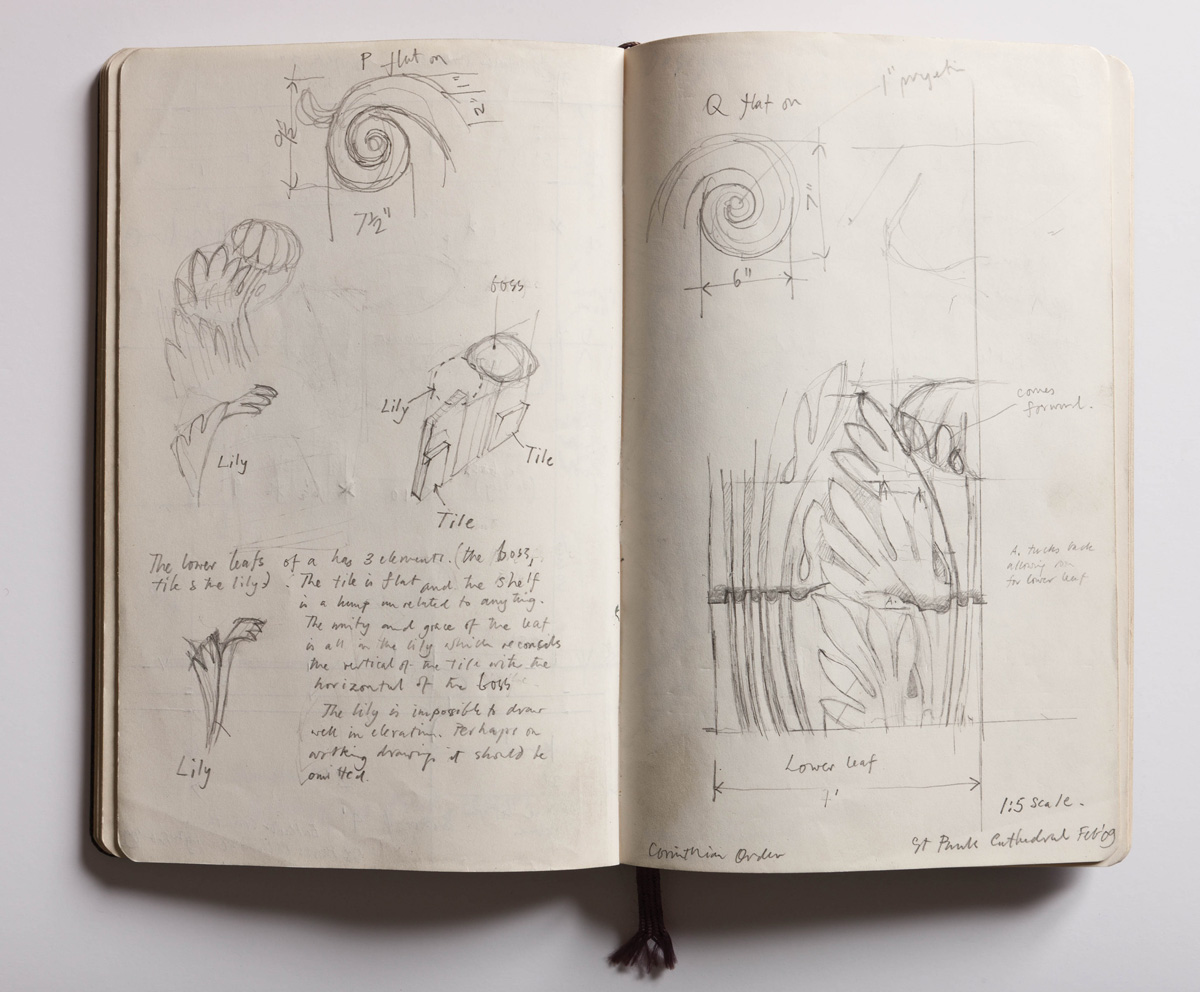 P flat on
1"
2"
9½"
7½"
boss
Lily
Lily
Tile
Tile
The lower leafs of a has 3 elements. (the boss,
tile & the lily). The tile is flat and the shelf
is a lump unrelated to anything.
The unity and grace of the leaf
is all in the lily which reconsils
the vertical of the tile with the
horizontal of the boss
The lily is impossible to draw
well in elevation. Perhaps on
working drawings it should be
omitted.
Lily
Q flat on
1"
7"
6"
comes
forward.
A
A
A. tucks back
allowing
for lower leaf
A.
Lower leaf
7'
1:5 scale.
Corinthian Order
St Pauls Cathedral Feb'09